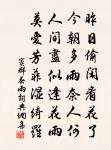 昨日偷閑看花了
今朝多雨奈人何
人間盡似逢花雨
莫愛芳菲濕綺羅
竇群春雨詞典網集